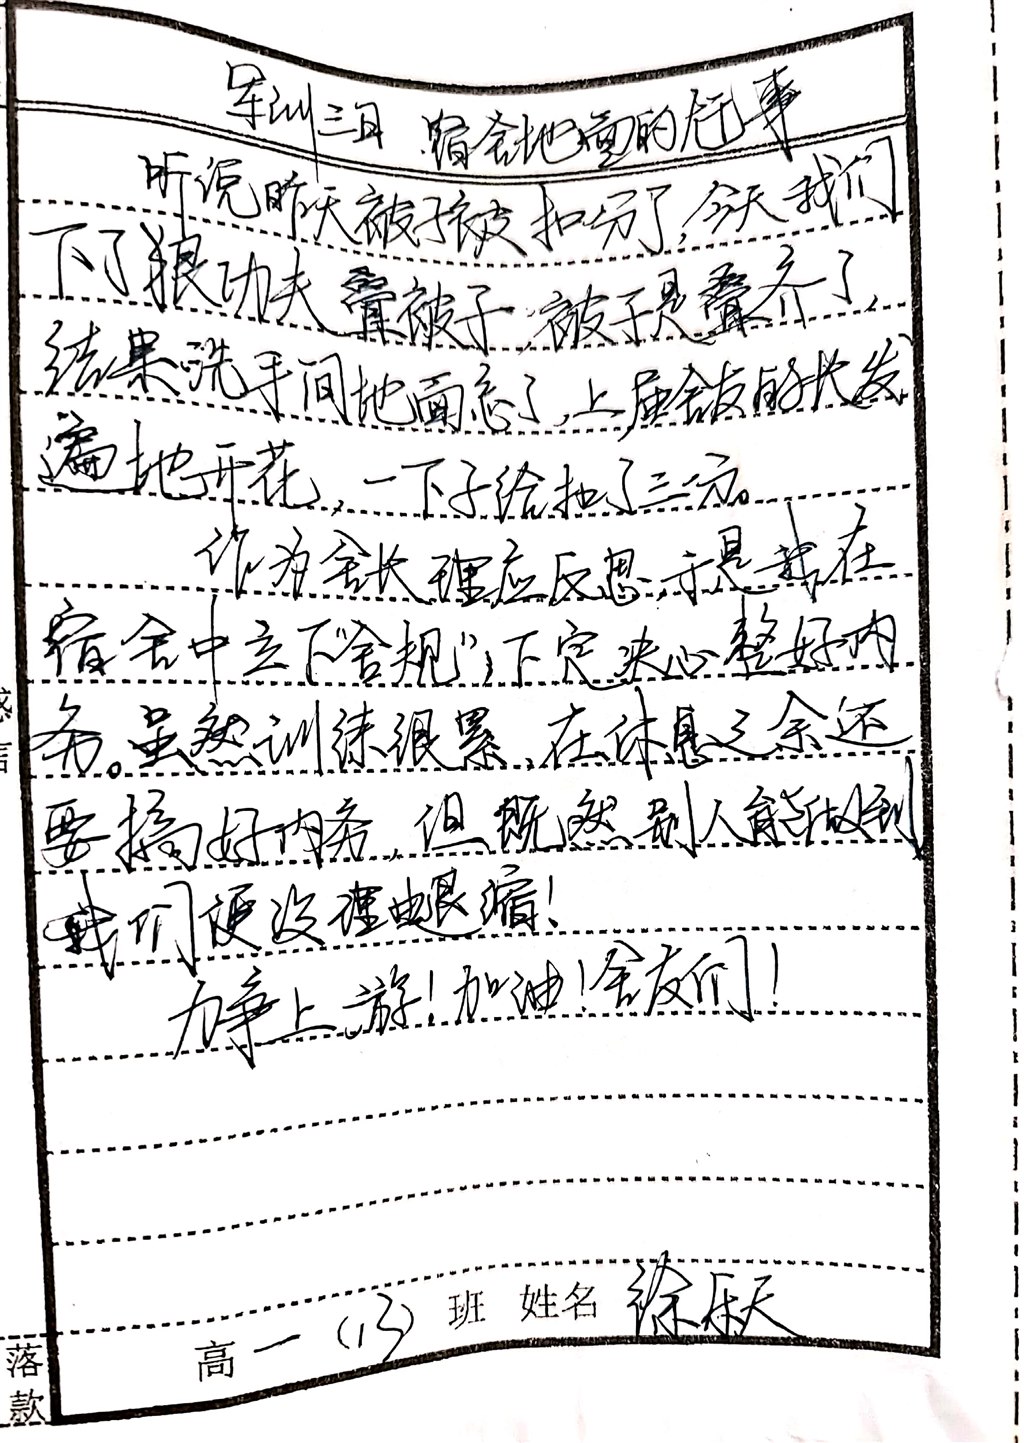 军训三日 宿舍地面的尬事
听说昨天被子被扣分了,今天我们
下了狠功夫叠被子,被子是叠齐了,
结果洗手间地面忘了,上届舍友的长发
遍地开花,一下子给扣了三分。
作为舍长理应反思,于是我在
宿舍中立下“舍规”,下定决心整好内
务。虽然训练很累,在休息之余还
要搞好内务,但既然别人能做到
我们便没理由退缩!
力争上游!加油!舍友们!
感言
高一(13)班 姓名 徐乐天
落款